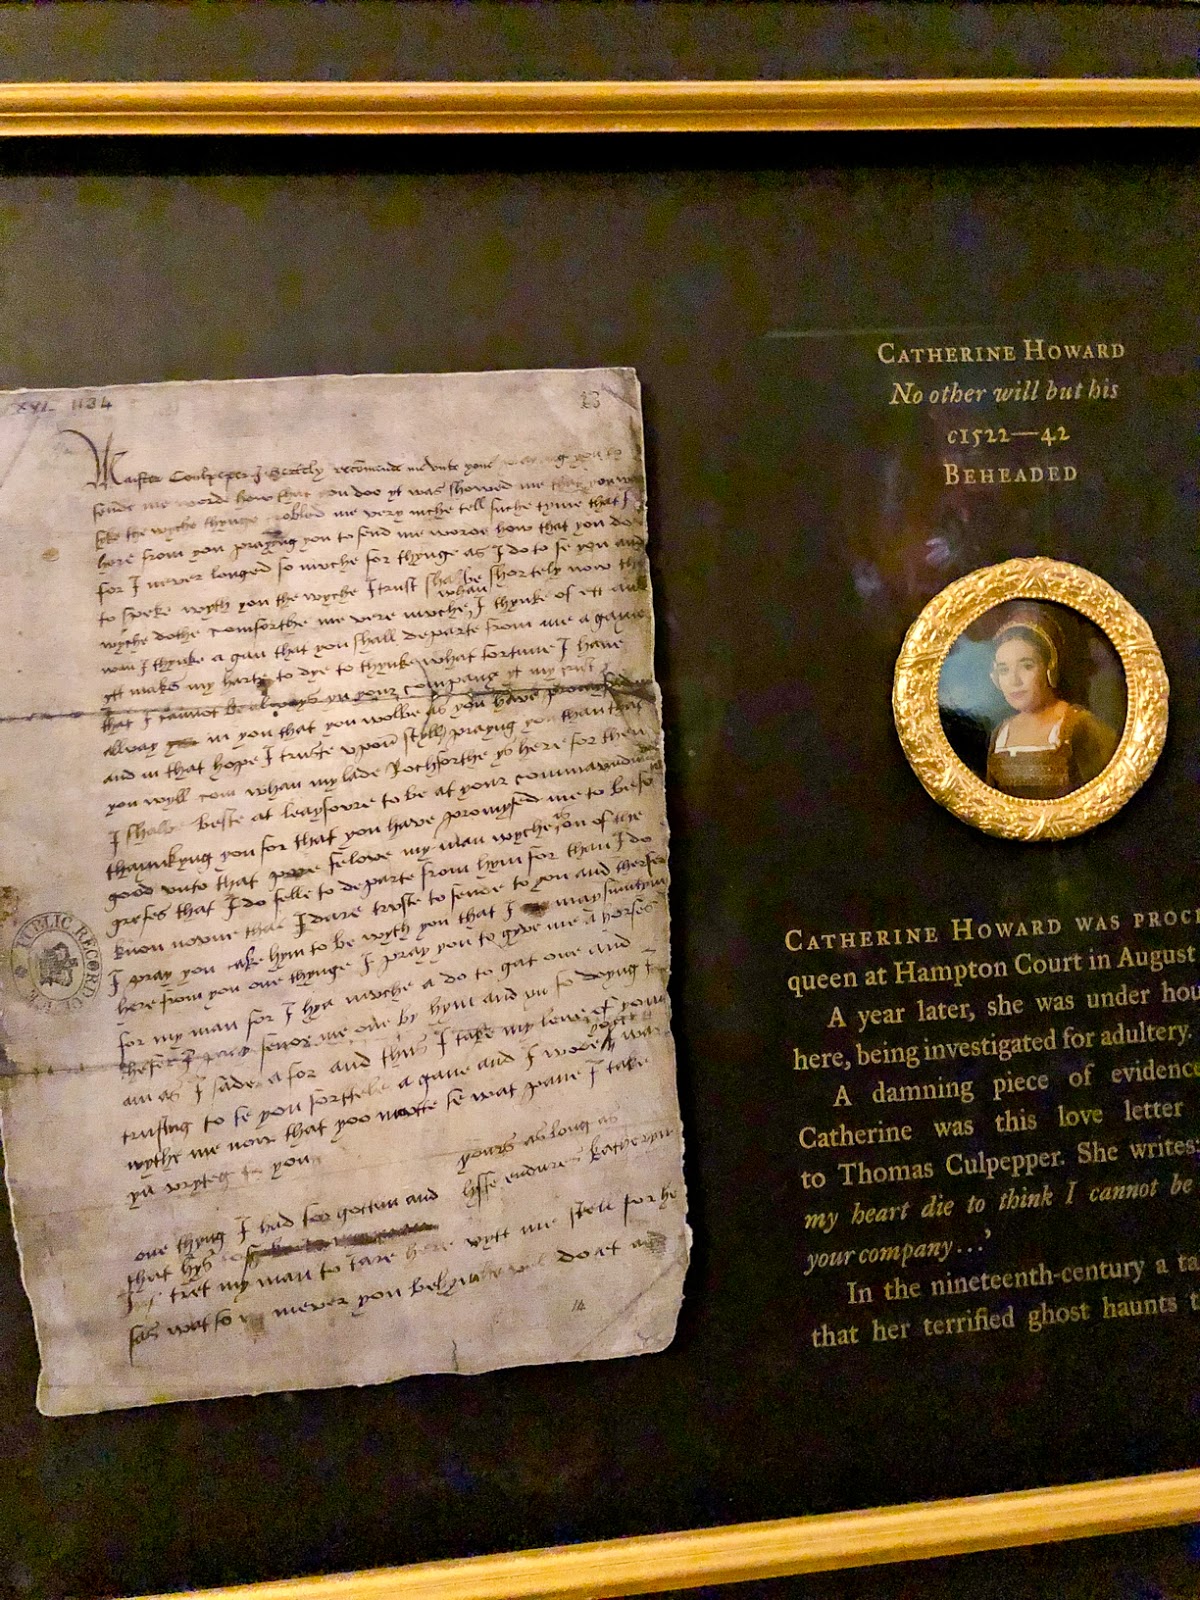 XVI. 1134
13
Maister Coulpeper I hertely recomend me unto youe praying you to
sende me worde how that you doo yt was showed me that you was
syke the wyche thynge trobled me very muche tell suche tyme that I
here from you praying you to send me worde how that you do
for I never longed so muche for thynge as I do to se you and
to speke wyth you the wyche I trust shalbe shortely now the
wyche dothe comforthe me verie muche whan I thynke of ett and
wan I thynke agan that you shall departe from me agane
ytt makes my harte to dye to thynke what fortune I have
that I cannot be always yn your company yt my trust ys
allway in you that you wolbe as you have promysed me
and in that hope I truste upon styll prayng you than that
you wyll com whan my lade Rochforthe ys here for then
I shalbe beste at leaysoure to be at your commaundment
thaynkyng you for that you have promysed me to be so
good unto that pore felowe my man wyche ys on of the
grefes that I do felle to departe from hym for than I do
know noone that I dare truste to sende to you and therfor
I pray you take hym to be wyth you that I may sumtym
here from you one thynge I pray you to gyve me a horse
for my man for I hyd muche a do to gat one and
thefer I pray sende me one by hym and yn so doyng I
am as I sade afor and thus I take my leve of you
trusting to se you shortele agane and I wode you was
wythe me now that yoo maitte se wat pane I take
yn wryteg to you
yours as long as
lyffe endures katheryn
one thyng I had forgotten and
that hys
tret my man to tare here wytt me still for he
sas wat so ever you bed hym he wel do et and
14
PUBLIC RECORD OFFICE
CATHERINE HOWARD
No other will but his
c1522—42
BEHEADED
CATHERINE HOWARD WAS
queen at Hampton Court in August
A year later, she was under
here, being investigated for adultery.
A damning piece of evidence
Catherine was this love letter
to Thomas Culpepper. She writes:
my heart die to think I cannot be
your company...'
In the nineteenth-century a
that her terrified ghost haunts